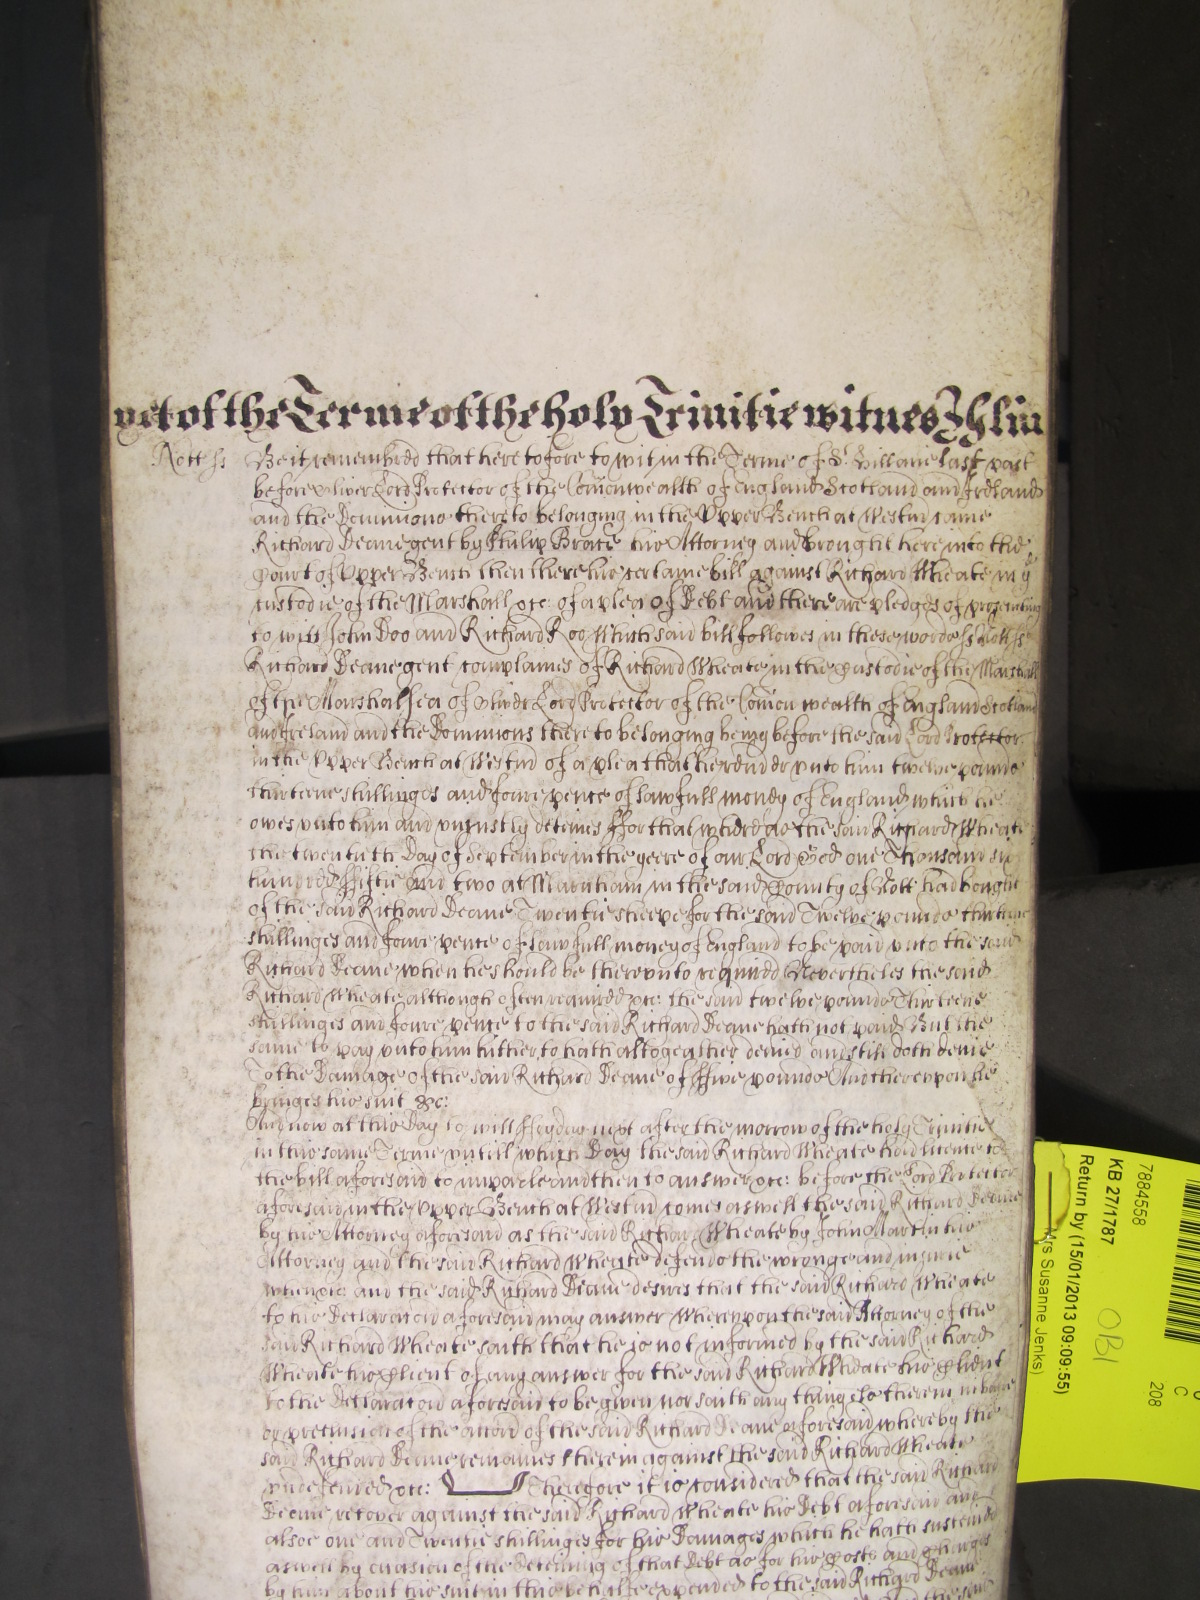 yet of the Terme of the holy Trinitie witnes
Nott ss Be it remembred that heretofore to wit in the Terme of St. Hillarie last past
before Oliver Lord Protector of the Comonwealth of England Scotland and Ireland
and the Dominions thereto belonging in the Upper Bench at Westmr came
Richard Deane gent by Phillip Brace his Attorney and brought here into this
Court of Upper Bench then there his certaine bill against Richard Wheate in ye
custodie of the Marshall &c: of a plea of Debt and there are pledges of prosecuting
to witt John Doo and Richard Roo, Which said bill followes in these wordes ss Nott ss
Richard Deane gent complaines of Richard Wheate in the custodie of the Marshall
of the Marshalsea of Oliver Lord Protector of the Comon wealth of England Scotland
and Ireland and the Dominions there to belonging being before the said Lord Protector
in the Upper Bench at Westmr of a plea that he render unto him twelve pounds
thirteene shillinges and foure pence of lawfull money of England which he
owes unto him and uniustly deteines ffor that whereas the said Richard Wheate
the twentieth Day of September in the yeere of our Lord God one Thousand six
hundred ffiftie and two at Marnham in the said County of Nott had bought
of the said Richard Deane Twentie sheepe for the said Twelve pounds thirteene
shillinges and foure pence of lawfull money of England to be paid unto the said
Richard Deane when he should be thereunto required Nevertheles the said
Richard Wheate although often required &c: the said twelve pounds Thirteene
shillinges and foure pence to the said Richard Deane hath not paid But the
same to pay unto him hitherto hath altogeather denied and still doth denie
To the Damage of the said Richard Deane of ffive pounds And thereupon he
bringes his suit &c:
And now at this Day to witt ffryday next after the morrow of the holy Trinitie
in this same Terme untill which Day the said Richard Wheate had licence to
the bill aforesaid to imparle and then to answer &c: before the Lord Protector
aforesaid in the Upper Bench at Westmr comes aswell the said Richard Deane
by his Attorney aforesaid as the said Richard Wheate by John Martin his
Attorney and the said Richard Wheate defendes the wronge and iniurie
when &c: and the said Richard Deane desires that the said Richard Wheate
to the Declaracon aforesaid may answer Whereupon the said Attorney of the
said Richard Wheate saith that he is not informed by the said Richard
Wheate his Client of any answer for the said Richard Wheate his Client
to the Declaracon aforesaid to be given nor saith any thing els therein in barre
or preclusion of the accon of the said Richard Deane aforesaid whereby the
said Richard Deane remaines therein against the said Richard Wheate
undefended &c: Therefore it is considered that the said Richard
Deane recover against the said Richard Wheate his Debt aforesaid and
alsoe one and Twentie shillinges for his Damages which he hath susteined
aswell by occasion of the deteining of that Debt as for his Costs and Charges
by him about his suit in this behalfe expended to the said Richard Deane
7884558
KB 27/1787
Return by (15/01/2013 09:09:55)
Mrs Susanne Jenks)
OBI
208
C